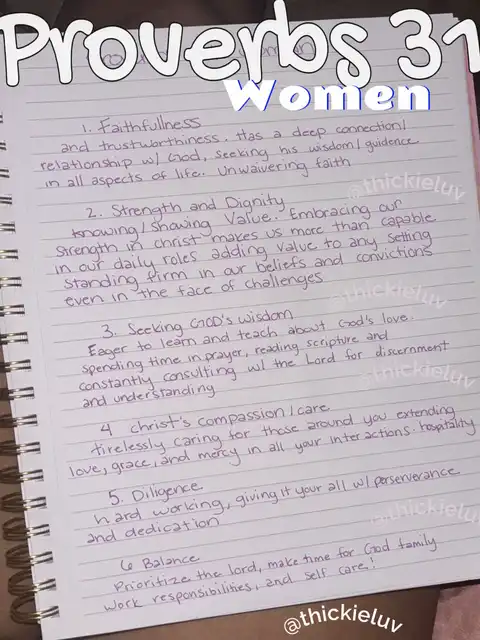 Proverbs 31
Women
1. Faithfullness
and trustworthiness. Has a deep connection/
relationship w/ God, seeking his wisdom/guidence
in all aspects of life. Unwaivering faith
@thickieluv
2. Strength and Dignity
Knowing/Showing Value. Embracing our
Strength in christ makes us more than capable
in our daily roles adding value to any setting
Standing firm in our beliefs and convictions
even in the face of challenges
@thickieluv
3. Seeking GOD's wisdom
Eager to learn and teach about God's love.
spending time in prayer, reading scripture and
constantly consulting w/ the Lord for discernment
and understanding
@thickieluv
4 Christ's compassion/care
tirelessly caring for those around you extending
love, grace, and mercy in all your interactions. hospitality
5. Diligence
hard working, giving it your all w/ perserverance
and dedication
@thickieluv
6 Balance
Prioritize the lord, make time for God family
work responsibilities, and self care!
@thickieluv